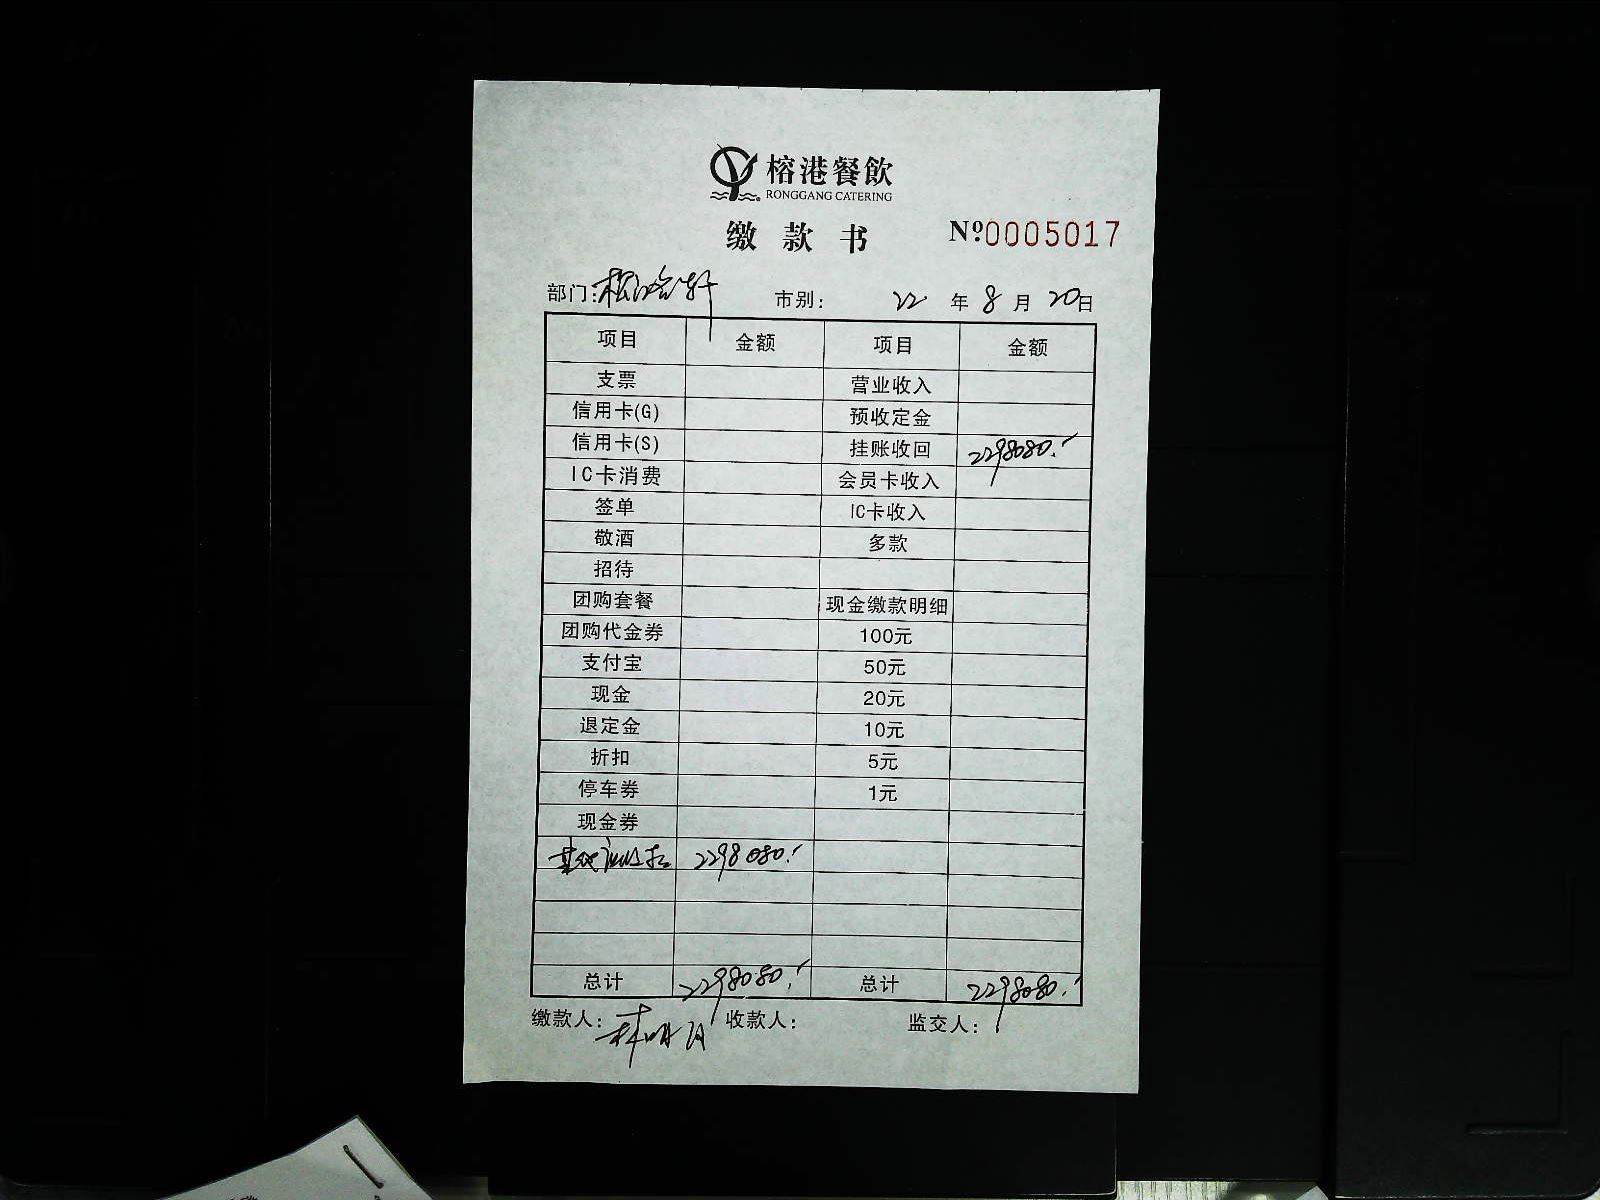 榕港餐飲
RONGGANG CATERING
缴款书 Nº0005017
部门: 市别: 22 年 8 月 20 日
项目 金额 项目 金额
支票 营业收入
信用卡(G) 预收定金
信用卡(S) 挂账收回 2298080.
IC卡消费 会员卡收入
签单 IC卡收入
敬酒 多款
招待
团购套餐 现金缴款明细
团购代金券 100元
支付宝 50元
现金 20元
退定金 10元
折扣 5元
停车券 1元
现金券
2298080.
总计 2298080. 总计 2298080.
缴款人: 林明月 收款人: 监交人: